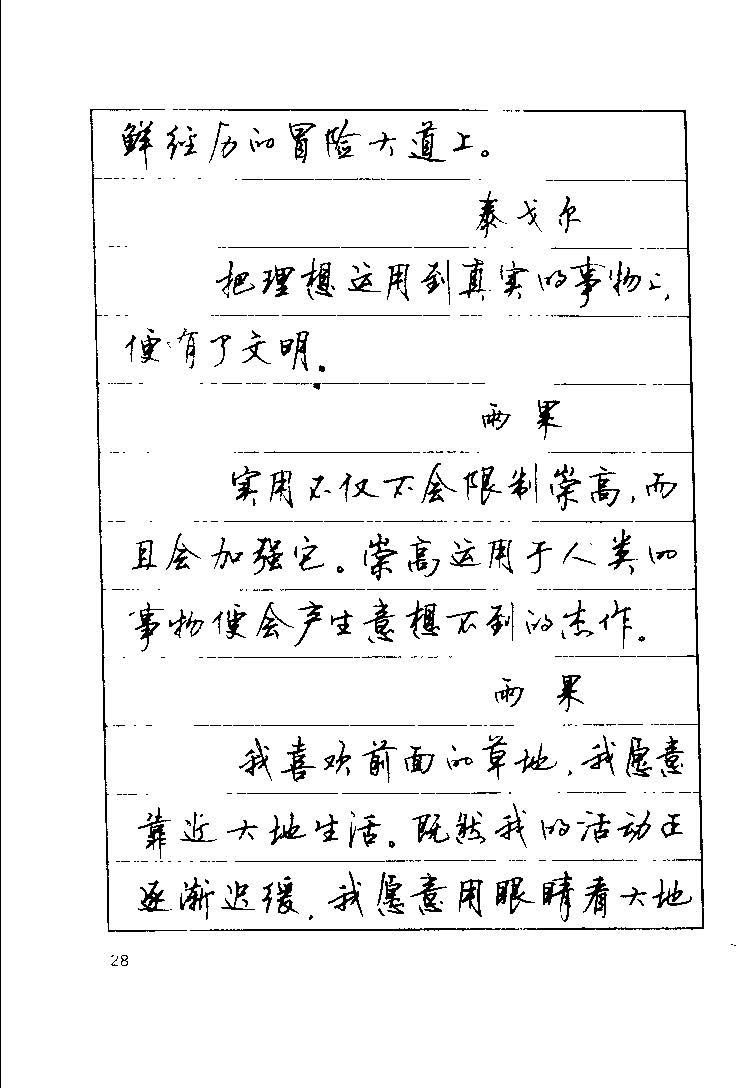 鲜经历的冒险大道上。
泰戈尔
把理想运用到真实的事物上,
便有了文明.
雨果
实用不仅不会限制崇高,而
且会加强它。崇高运用于人类的
事物便会产生意想不到的杰作。
雨果
我喜欢前面的草地,我愿意
靠近大地生活。既然我的活动正
逐渐迟缓,我愿意用眼睛看大地
28